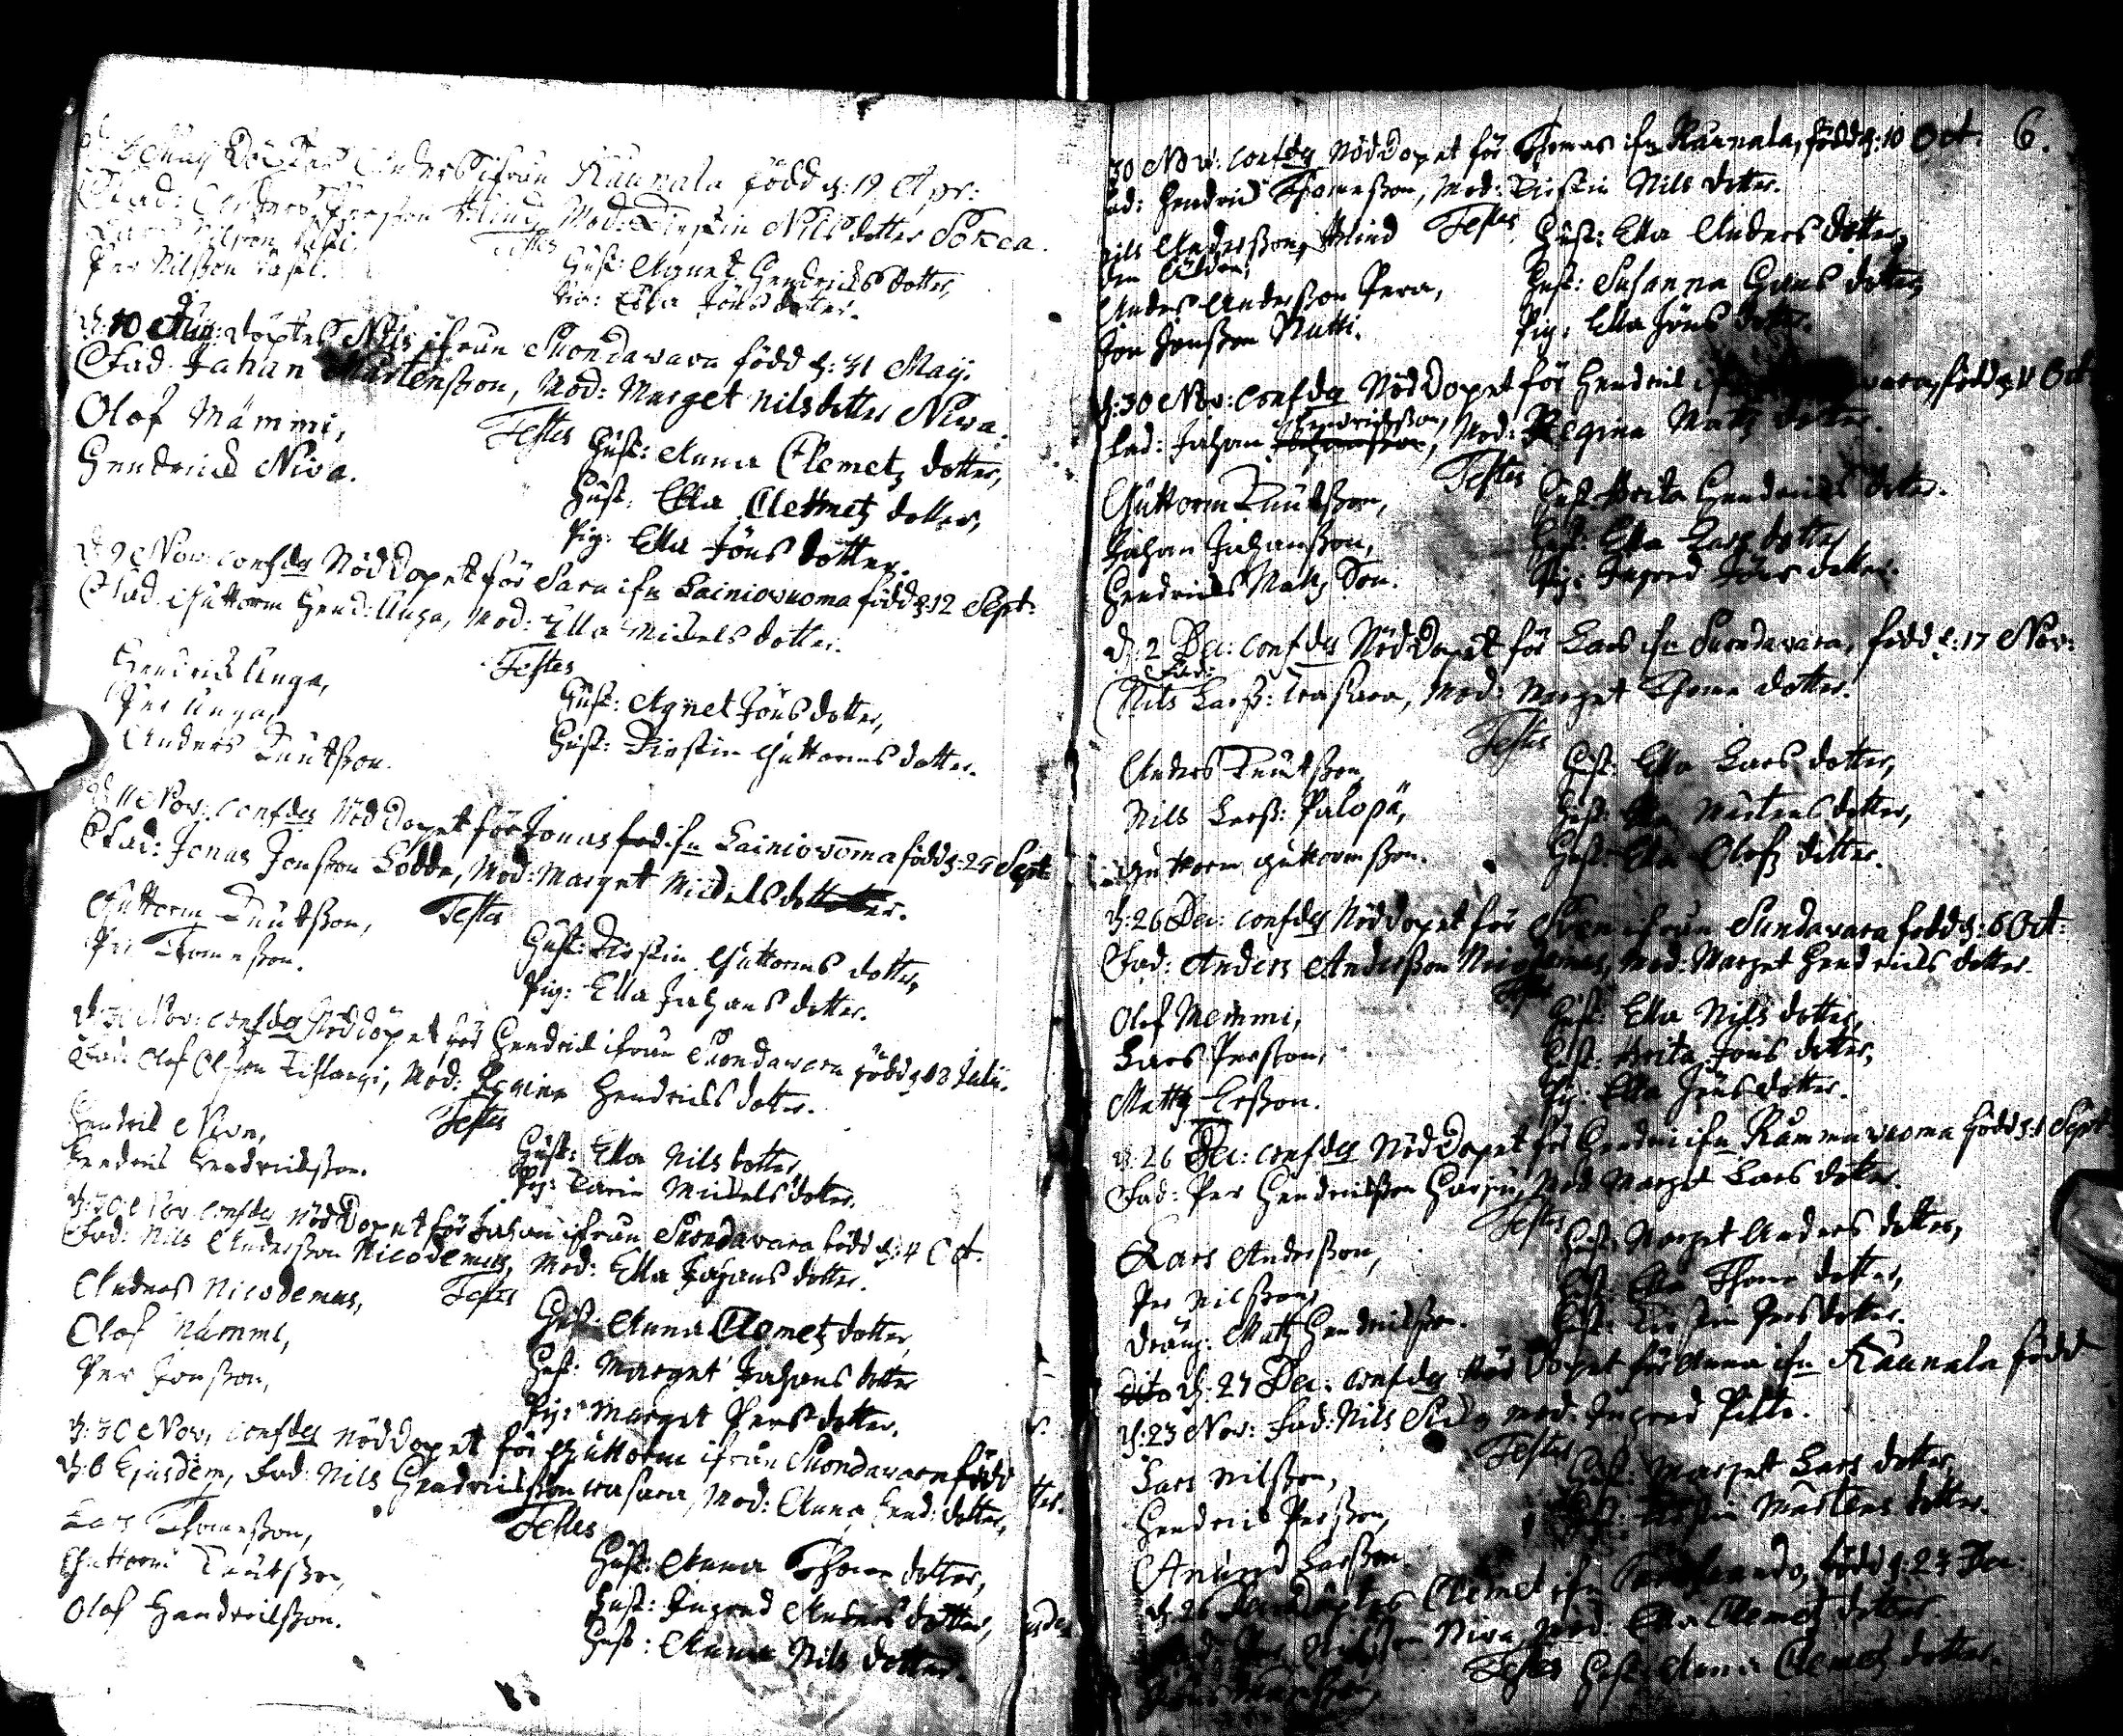 Maij Döptes Anders ifrån Kaunala född d: 19 Apr:
Fad: Anders Persson Blind, Mod: Kirstin Nils dotter Sokca.
Testes
Per Nilsson Vasti.
Hust: Agnet Hendrichs dotter,
Pig: Ella Jöns dotter.
d: 10 döptes Nils ifrån Suondavara född d: 31 Maij.
Fad. Johan Mårtensson, Mod: Marget Nils dotter Niva.
Olof Mämmi,
Testes
Hendrich Niva.
Hust: Anna Clemetz dotter,
Hust: Ella Clemetz dotter,
Pig: Ella Jöns dotter.
d: 9 Nov: confdes Nöddopet för Sara ifn Lainiovuoma född d: 12 Sept:
Fad. Guttorm Hend: Unga, Mod: Ella Michels dotter.
Testes
Hendrich Unga,
Per Unga,
Anders Knutsson.
Hust: Agnet Jöns dotter,
Hust: Kirstin Guttorms dotter.
d: 11 Nov: confdes Nöddopet för Jonas ifn Lainiovoma född d: 29 Sept:
Fad: Jonas Jonsson Lodde, Mod: Marget Michels dotter.
Guttorm Knutsson,
Testes
Per Thomesson.
Hust: Kirstin Guttorms dotter,
Pig: Ella Johans dotter.
d: 30 Nov: confdes Nöddöpet för Hendrich ifrån Suondavara född d 18 Julii.
Fad: Olof Olsson, Mod: Regina Hendrichs dotter.
Testes
Hendrich Niva,
Hendrich Hendrichsson.
Hust: Ella Nils dotter,
Pig: Karin Michels dotter.
d: 30 Nov confdes Nöddopet för Johan ifrån Suondavara född d: 4 Oct.
Fad: Nils Andersson Nicodemus, Mod: Ella Johans dotter.
Anders Nicodemus,
Testes
Olof Mämmi,
Per Jonsson,
Hust: Anna Clemetz dotter,
Hust: Marget Johans dotter
Pig: Marget Pers dotter.
d: 30 Nov, confdes Nöddopet för Guttorm ifrån Suondavara född
d: 6 Ejusdem, Fad: Nils Hendrichsson Vasara, Mod: Anna Hend: dotter,
Testes
Lars Thomesson,
Guttorm Knutsson,
Olof Hendrichsson.
Hust: Anna Thome dotter,
Hust: Ingred Anders dotter,
Hust: Anna Nils dotter.
6.
30 Nov: confdes Nöddopet för Thomas ifn Kaunala, född d: 10 Oct.
Fad: Hendrich Thomesson, Mod: Kirstin Nils dotter.
Testes
Nils Andersson Blind
den Äldre,
Anders Andersson Pera,
Jon Jonsson Nutti.
Hust: Ella Anders dotter,
Hust: Susanna Hans dotter,
Pig: Ella Jöns dotter.
d: 30 Nov: confdes Nöddopet för Hendrich född d: 11 Oct
Hendrichsson,
Fad: Johan, Mod: Regina Matz dotter.
Testes
Guttorm Knutsson,
Johan Johansson,
Hendrich Matz Son.
Hust: Brita Hendrichs dotter.
Hust: Ella Lars dotter,
Pig: Ingred Jöns dotter.
d: 2 Dec: confdes Nöddopet för Lars ifn Suondavara, född d: 17 Nov:
Fad:
Nils Larss: Vasara, Mod: Marget Thome dotter.
Testes
Anders Knutsson,
Nils Larss: Palopä,
Guttorm Guttormsson.
Hust: Ella Lars dotter,
Hust: Mårtens dotter,
Hust: Ella Olofz dotter.
d: 26 Dec: confdes Nöddopet för Sven ifrån Sundavara född d: 6 Oct:
Fad: Anders Andersson Nicodemus, Mod: Marget Hendrichs dotter.
Testes
Olof Memmi,
Lars Persson,
Matz Ersson.
Hust: Ella Nils dotter,
Hust: Brita Jöns dotter,
Pig: Ella Jöns dotter.
d: 26 Dec: confdes Nöddopet för Hendrich ifn Rammavuoma född d: 1 Sept:
Fad: Per Hendrichsson, Mod: Marget Lars dotter.
Testes
Lars Andersson,
Per Nilsson,
Dräng: Matz Hendrichsson.
Hust: Marget Anders dotter,
Hust: Ella Thome dotter,
Hust: Kirstin Pers dotter.
dito d: 27 Dec: confdes Nöddopet för Anna ifn Kaunala född
d: 23 Nov: Fad: Nils, Mod: Ingred Pilto.
Testes
Lars Nilsson,
Hendrich Persson,
Amund Larsson
Hust: Marget Lars dotter,
Hust: Kirstin Mårtens dotter.
d: 26 döptes Clemet ifn, född d: 24 Dec:
Niva, Mod: Ella Clemetz dotter.
Testes Hust: Anna Clemetz dotter.